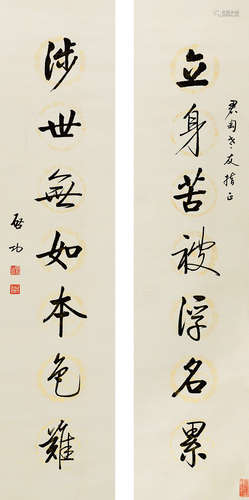 君匋老友指正
立身苦被浮名累
涉世無如本色難
啟功